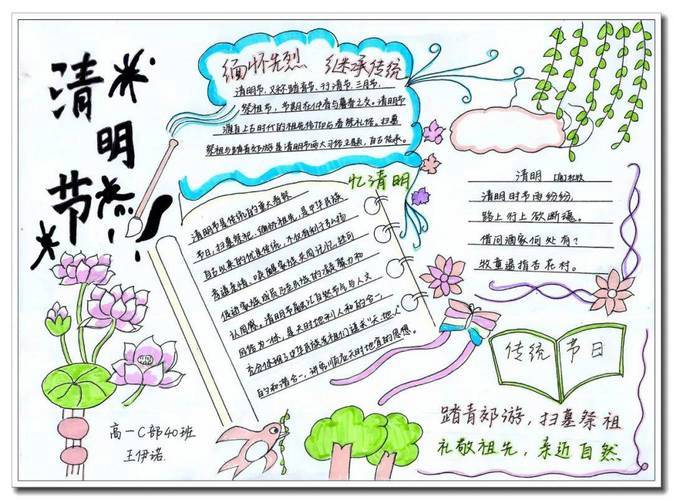 清明节
缅怀先烈 继承传统
清明节,又称踏青节、行清节、三月节、
祭祖节,节期在仲春与暮春之交。清明节
源自上古时代的祖先信仰与春祭礼俗,扫墓
祭祖与踏青郊游是清明节两大习俗主题,自古传承。
忆清明
清明节是传统的重大春祭
节日,扫墓祭祀、缅怀祖先,是中华民族
自古以来的优良传统,不仅有利于弘扬
孝道亲情、唤醒家族共同记忆,还可
促进家族成员乃至民族的凝聚力和
认同感。清明节融汇自然节气与人文
风俗为一体,是天时地利人和的合一,
充分体现了中华民族先祖们追求"天、地、人"
的和谐合一,讲究顺应天时地宜的思想。
清明 [唐]杜牧
清明时节雨纷纷,
路上行人欲断魂。
借问酒家何处有?
牧童遥指杏花村。
传统 节日
踏青郊游,扫墓祭祖
礼敬祖先,亲近自然
高一C部40班
王伊诺